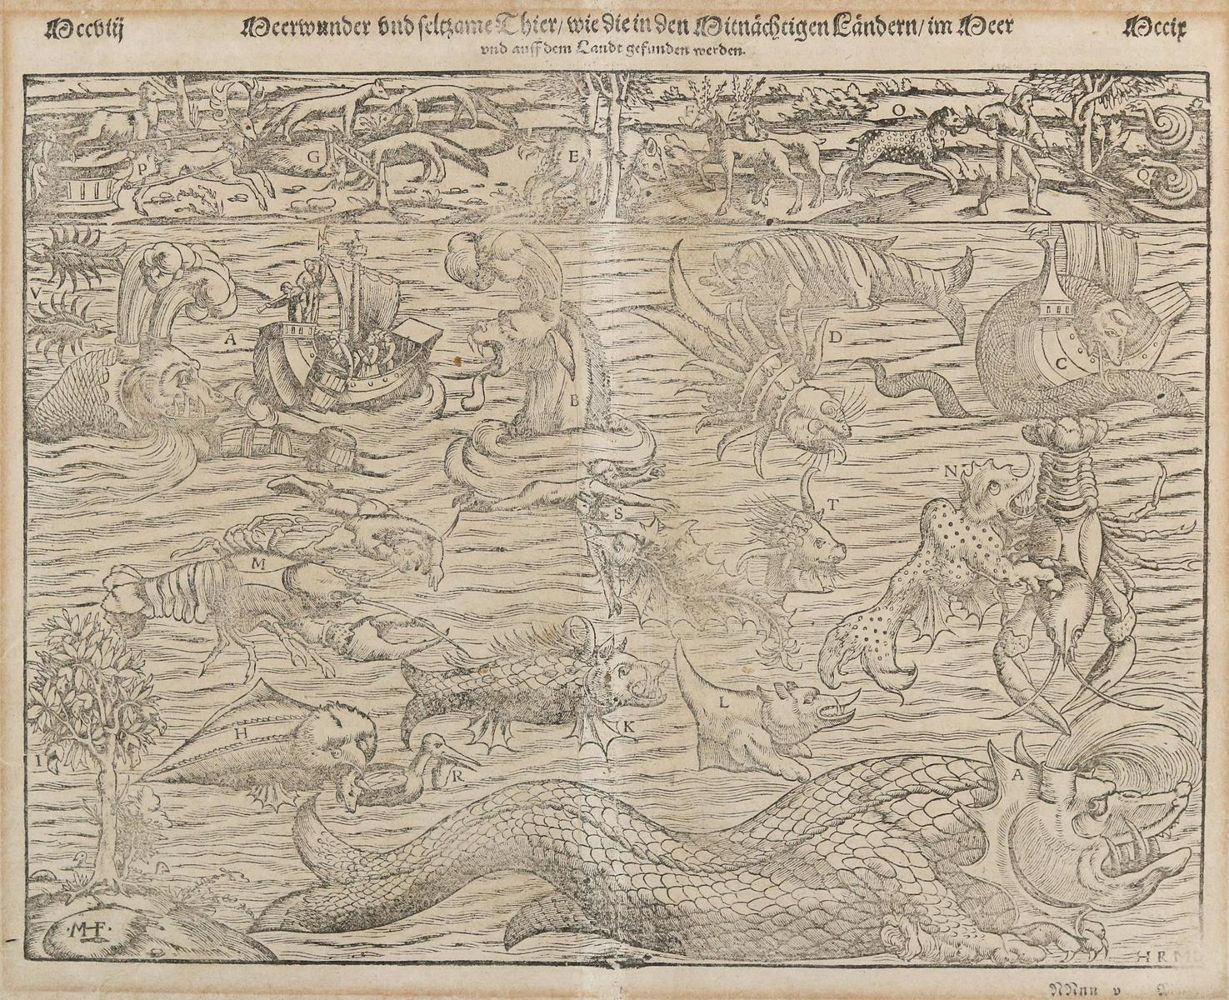 Mccviij Meerwunder vnd seltzame Thier/ wie die in den Mitnächtigen Ländern/ im Meer Mccix
vnd auff dem Landt gefunden werden.
O
P G E Q
V
A D
B C
N
S T
M
L
H K
I R
A
MHF
HRM
NNnn v